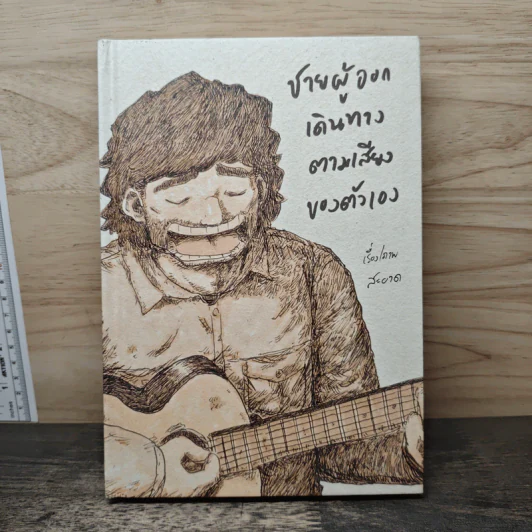 ชายผู้ออก
เดินทาง
ตามเสียง
ของตัวเอง
เรื่อง/ภาพ
สะอาด